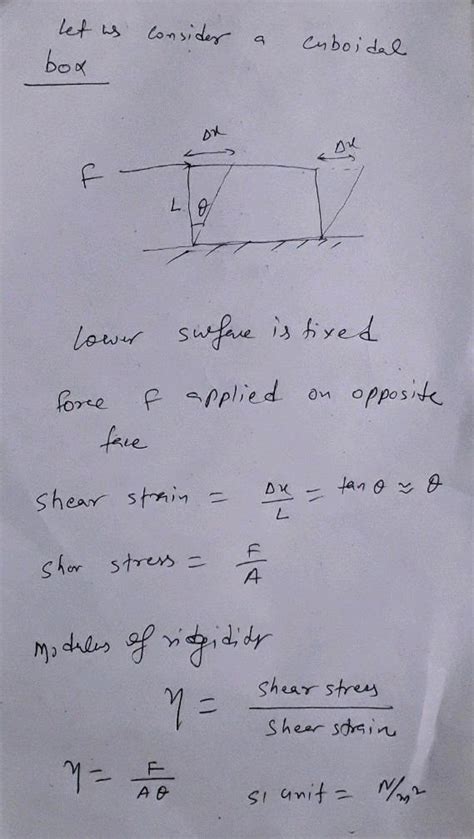 Let us consider a cuboidal
box
Δx Δx
F
L θ
Lower surface is fixed
force F applied on opposite
face
Shear strain = Δx/L = tan θ ≈ θ
Shor stress = F/A
Modulus of ridgididy
η = Shear stress / Sheer strain
η = F/Aθ SI unit = N/m²